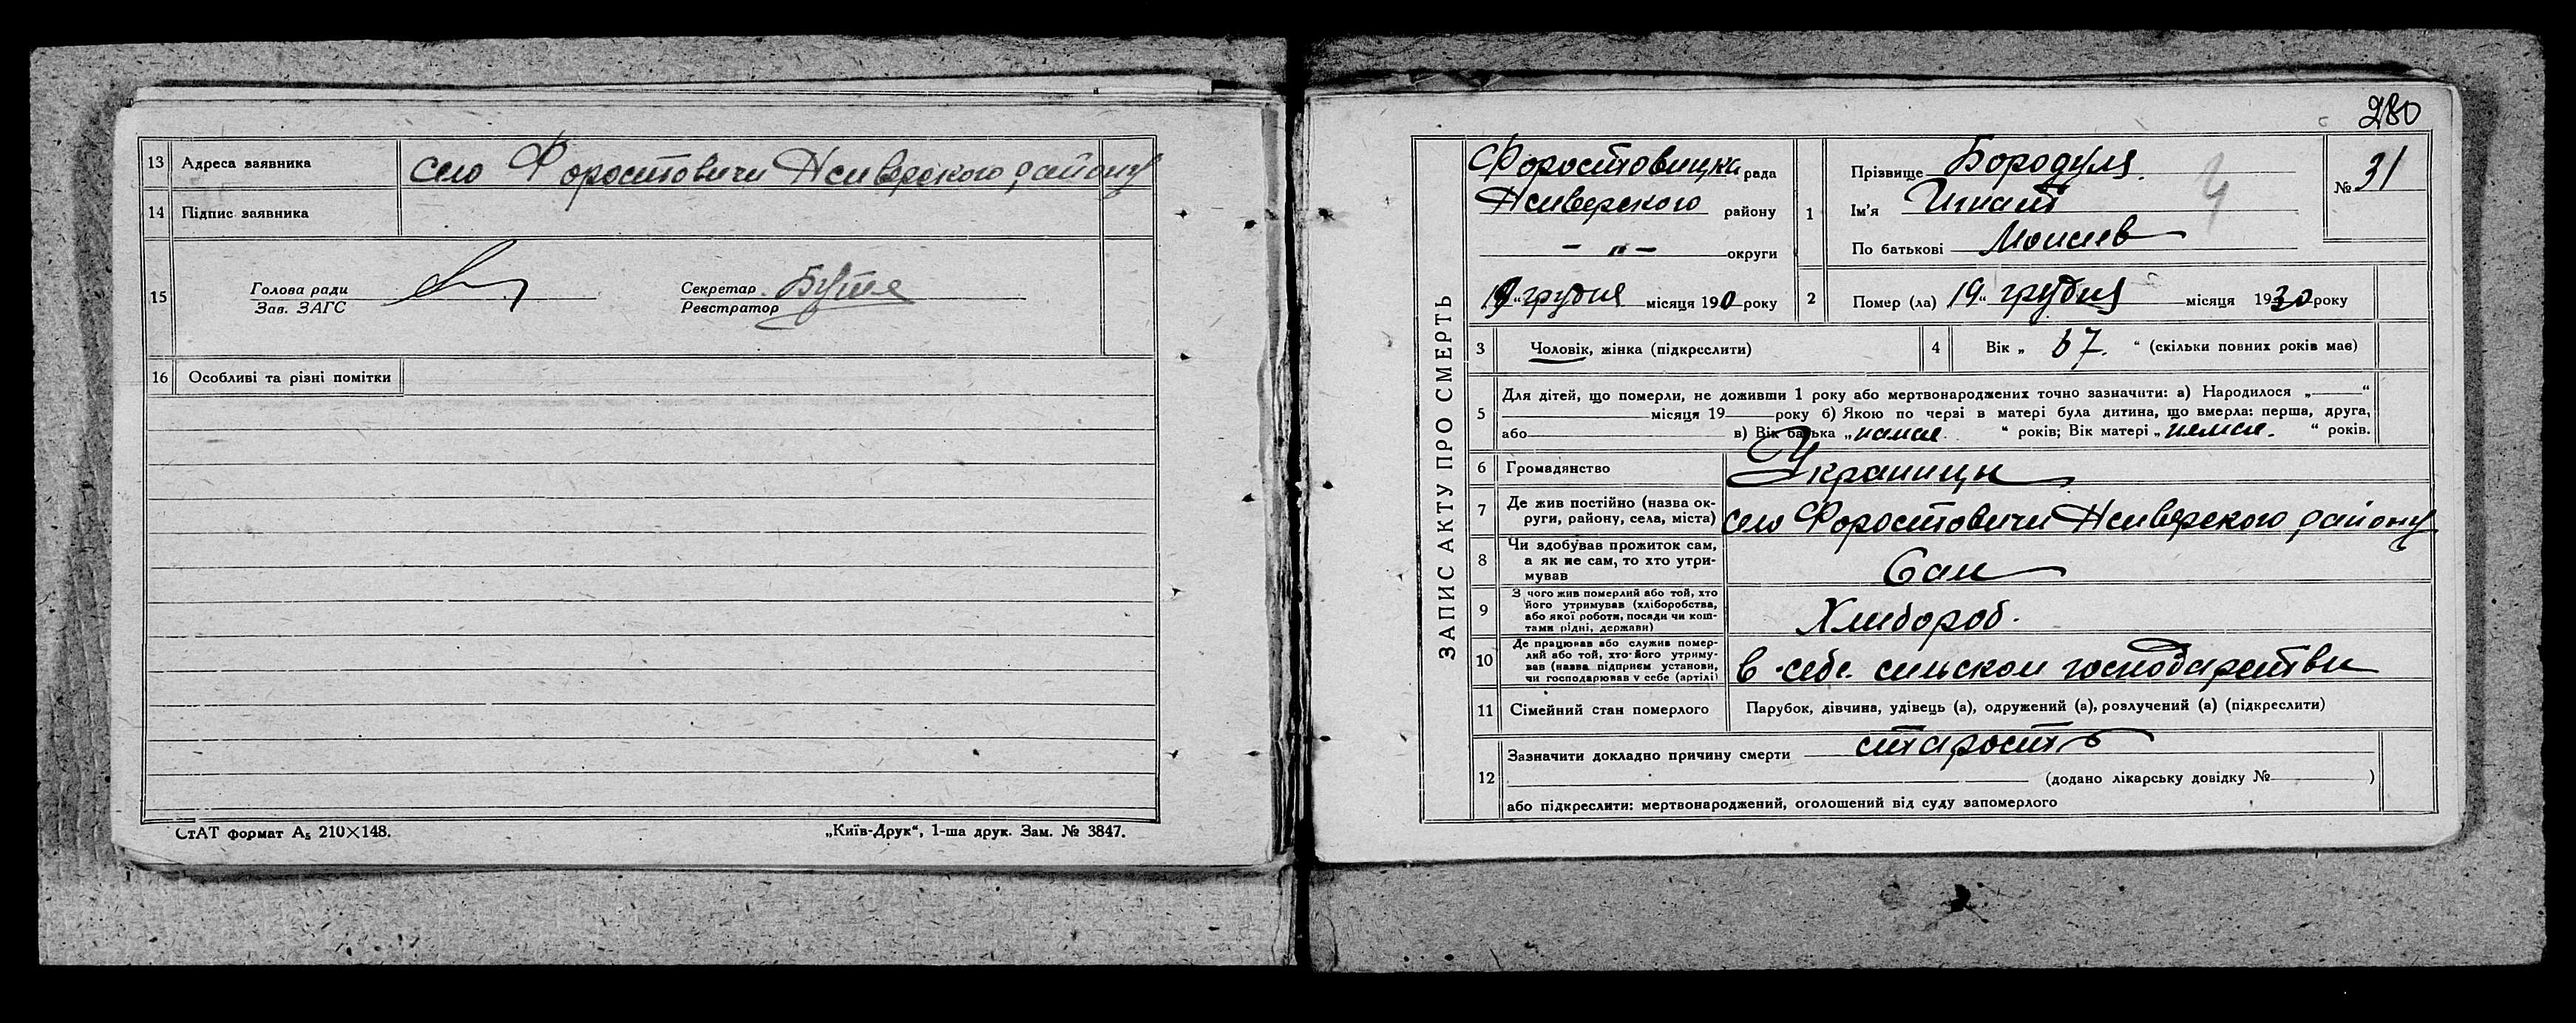 13 Адреса заявника село Форостовичи Нсиверского району
14 Підпис заявника
15 Голова ради
Зав. ЗАГС
Секретар
Реєстратор
16 Особливі та різні помітки
СтАТ формат А₅ 210×148.
„Київ-Друк“, 1-ша друк. Зам. № 3847.
280
ЗАПИС АКТУ ПРО СМЕРТЬ
Форостовицка рада
Нсиверского району
— „ — округи
19 „ грудня місяця 190 року
1 Прізвище Бородуля
Ім'я Игнат
По батькові Моисев
№ 31
2 Помер (ла) 19 „ грудня місяця 1930 року
3 Чоловік, жінка (підкреслити)
4 Вік „ 67. “ (скільки повних років має)
5 Для дітей, що померли, не доживши 1 року або мертвонароджених точно зазначити: а) Народилося „ “
місяця 19 року б) Якою по черзі в матері була дитина, що вмерла: перша, друга,
або в) Вік батька „ “ років; Вік матері „ “ років.
6 Громадянство Украинцы
7 Де жив постійно (назва ок-
руги, району, села, міста) село Форостовичи Нсиверского району
8 Чи здобував прожиток сам,
а як не сам, то хто утри-
мував Сам
9 З чого жив померлий або той, хто
його утримував (хліборобства,
або якої роботи, посади чи кош-
тами рідні, держави) Хлибороб.
10 Де працював або служив помер-
лий або той, хто його утриму-
вав (назва підприєм установи,
чи господарював у себе (артілі) в себе сильском господарстви
11 Сімейний стан померлого Парубок, дівчина, удівець (а), одружений (а), розлучений (а) (підкреслити)
12 Зазначити докладно причину смерти старость
(додано лікарську довідку № )
або підкреслити: мертвонароджений, оголошений від суду запомерлого